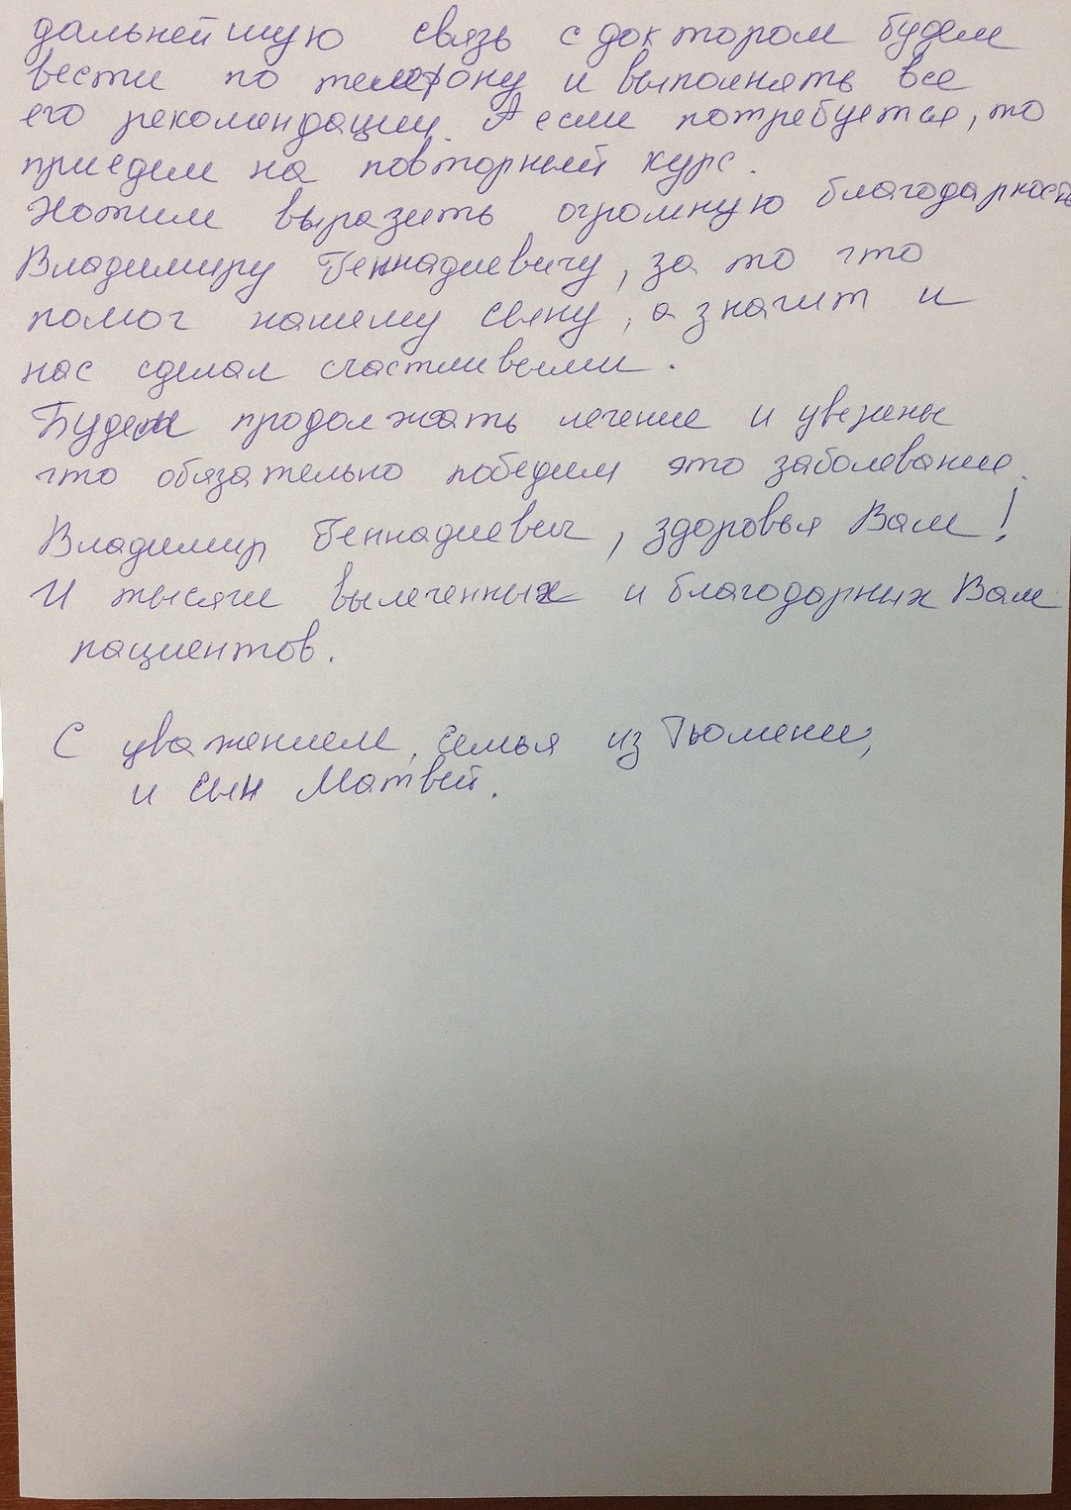 дальнейшую связь с доктором будем
вести по телефону и выполнять все
его рекомендации. А если потребуется, то
приедем на повторный курс.
Хотим выразить огромную благодарность
Владимиру Геннадиевичу, за то что
помог нашему сыну, а значит и
нас сделал счастливыми.
Будем продолжать лечение и уверены
что обязательно победим это заболевание.
Владимир Геннадиевич, здоровья Вам!
И тысячи вылеченных и благодарных Вам
пациентов.
С уважением, семья из Тюмени,
и сын Матвей.